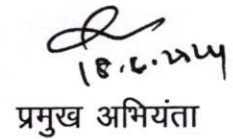 18.6.2024
प्रमुख अभियंता